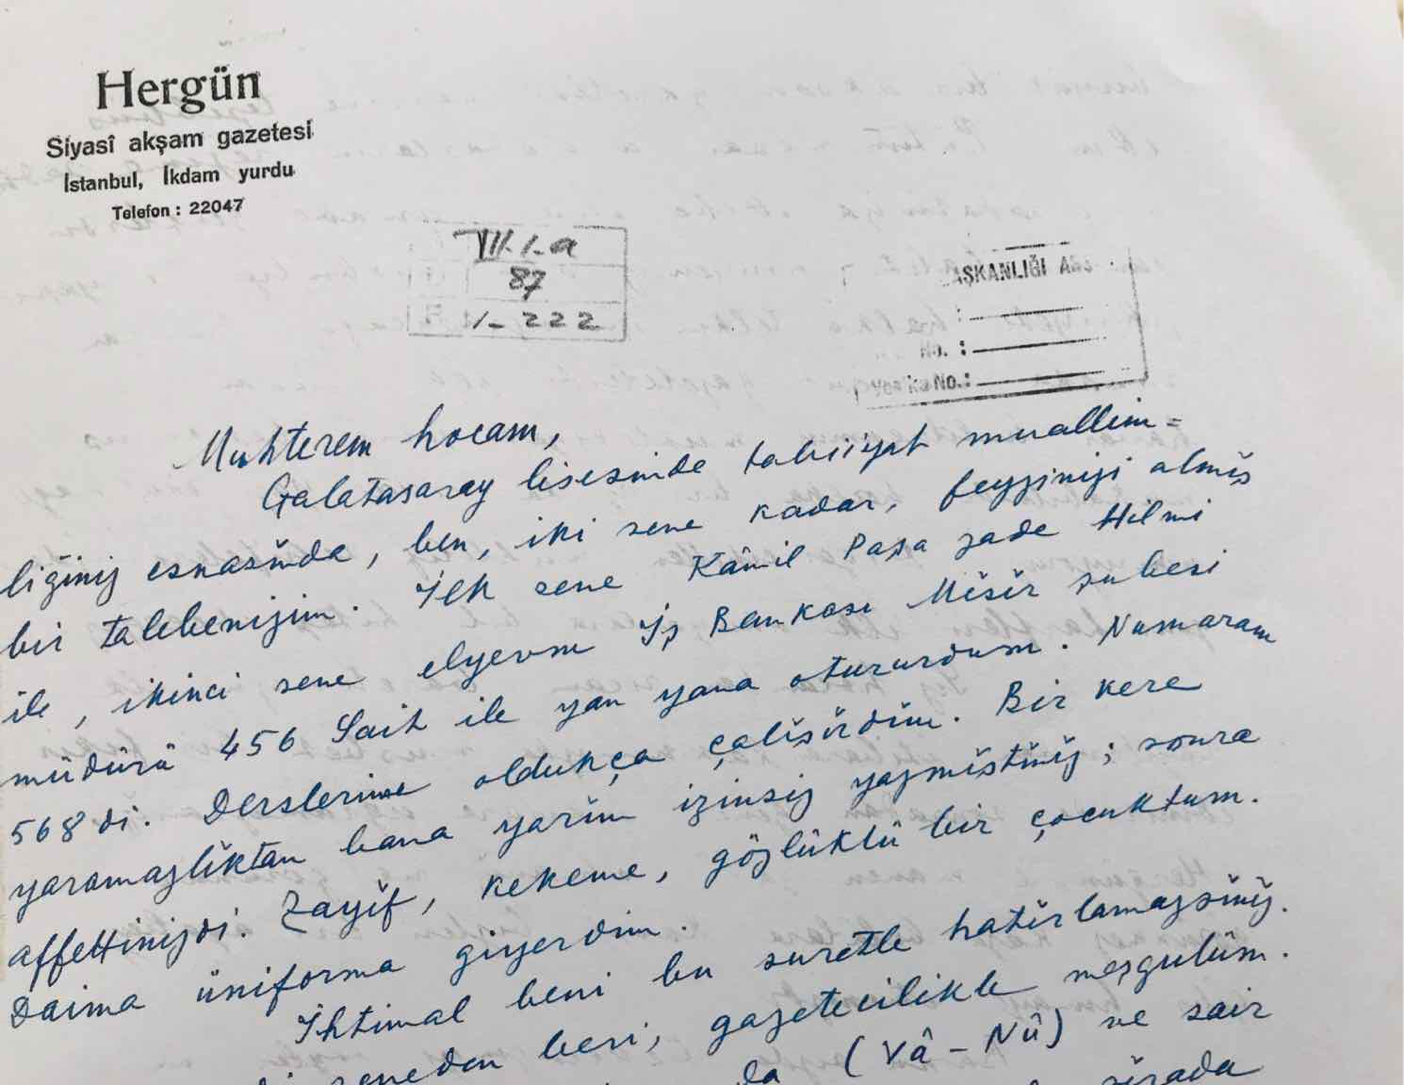 Hergün
Siyasî akşam gazetesi
İstanbul, İkdam yurdu
Telefon : 22047
VII.I-a
87
1-222
AŞKANLIĞI
No. :
No.:
Muhterem hocam,
Galatasaray lisesinde tabiiyat muallim=
liğiniz esnasında, ben, iki sene kadar, feyzinizi almış
bir talebenizim. İlk sene Kâmil Paşa zade Hilmi
ile, ikinci sene elyevm İş Bankası Mısır şubesi
müdürü 456 Sait ile yan yana otururdum. Numaram
568 di. Derslerime oldukça çalışırdım. Bir kere
yaramazlıktan bana yarım izinsiz yazmıştınız; sonra
affettinizdi. Zayıf, kekeme, gözlüklü bir çocuktum.
Daima üniforma giyerdim.
İhtimal beni bu suretle hatırlamazsınız.
seneden beri, gazetecilikle meşgulüm.
da (Vâ-Nû) ve sair
sırada